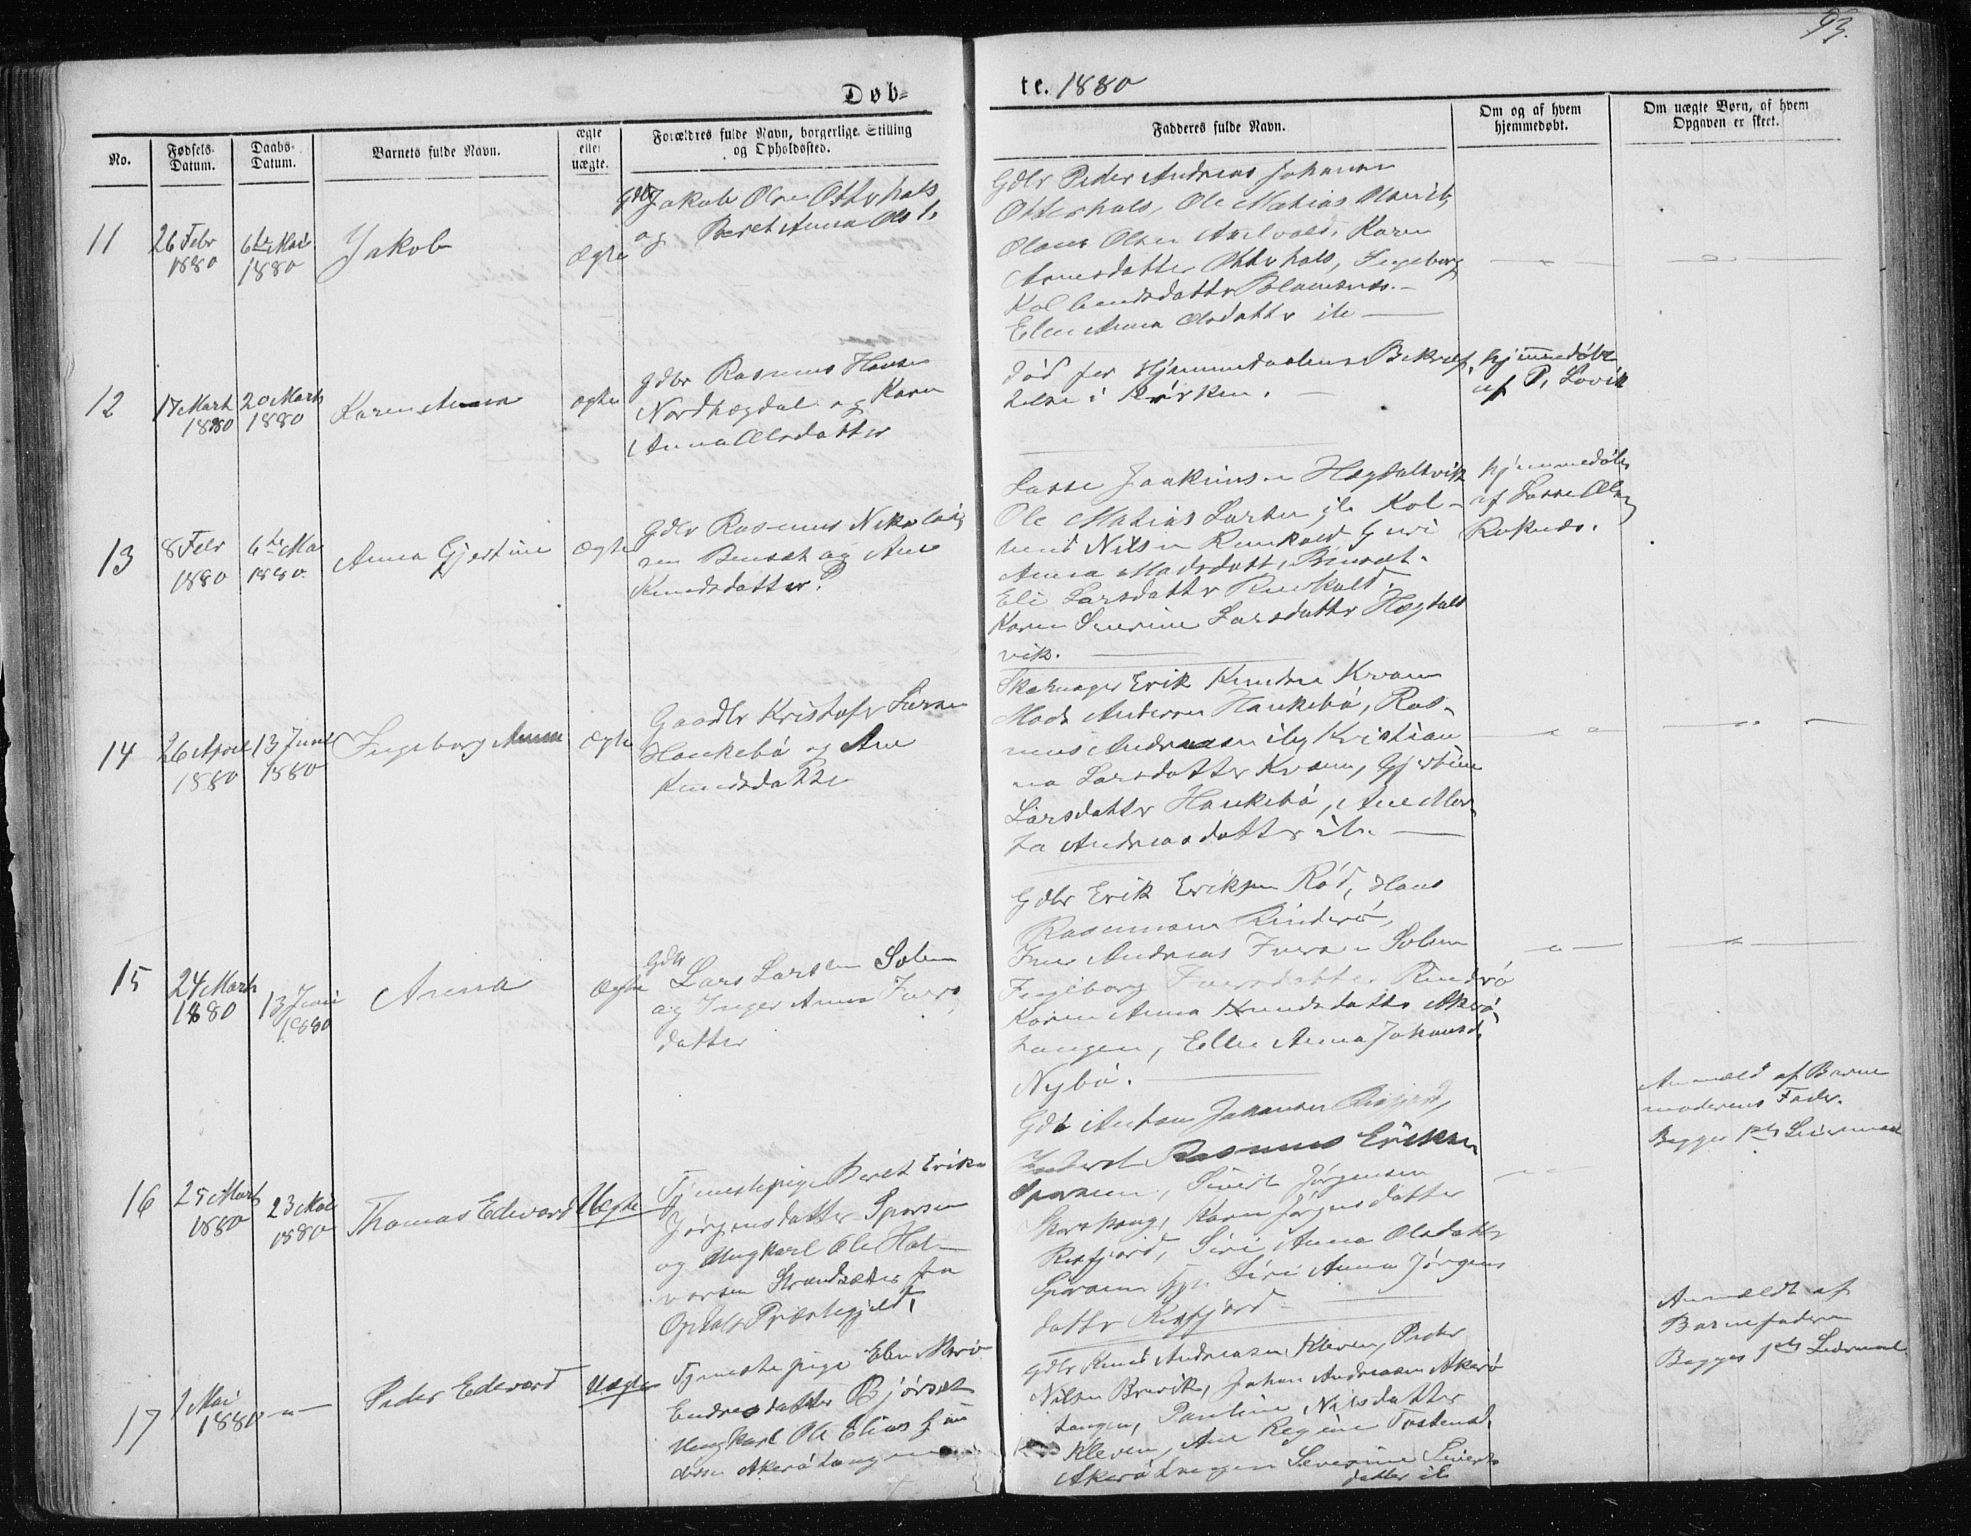 93.
Døb-
te. 1880
No.
Fødsels-
Datum.
Daabs-
Datum.
Barnets fulde Navn.
ægte
eller
uægte.
Forældres fulde Navn, borgerlige Stilling
og Opholdssted.
Fadderes fulde Navn.
Om og af hvem
hjemmedøbt.
Om uægte Børn, af hvem
Opgaven er skeet.
11
26 Febr
1880
6te Mai
1880
Jakob
Ægte
Gdbr Jakob Olsen Otterhals
og Beret Anna Ols
Gdbr Peder Andreas Johansen
Otterhals, Ole Matias Olsen ib,
Olaus Olsen Karen
Arnesdatter Otterhals, Ingeborg
datter
Elen Anna Olsdatter ib
12
17 Marts
1880
20 Marts
1880
Karen Anna
ægte
Gdbr Rasmus Hansen
Nordhegdal og Karen
Anna Olsdatter
Død før Hjemmedaabens Bekræf-
telse i Kirken.
hjemmedøbt
af P. Lovik
13
8 Febr
1880
6te Mai
1880
Anna Gjertine
Ægte
Gdbr Rasmus Nikolai
sen og Ane
Knudsdatter
Lasse Joakimsen Hegdalsvik
Ole Matias Larsen ib Kol-
Nilsen Guri
Anna Madsdatt,
Eli Larsdatter
Karen Severine Larsdatter Hegdals
vik.
hjemmedøbt
af Lasse Olsen
Raknes.
14
26 April
1880
13 Juni
1880
Ingeborg Anna
Ægte
Gaardbr Kristofer Larsen
Haukebø og Ane
Knudsdatter
Erik Knudsen Kvam
Mads Andersen Haukebø, Ras-
mus Andreasen ib, Kristian
na Larsdatter Kvam, Gjertine
Larsdatter Haukebø, Ane Mar
ta Andreasdatter ib.
15
24 Marts
1880
13 Juni
1880
Anna
Ægte
Gdbr Lars Larsen Solem
og Inger Anna Ivers
datter
Gdbr Erik Eriksen Rød, Hans
Rasmussen Rinderø,
Andreas Iversen Solem
Ingeborg Iversdatter Rinderø
Karen Anna Knudsdatter Akerø
tangen, Ellen Anna Johansd.
Nybø.
16
25 Marts
1880
23 Mai
1880
Thomas Edvard
Uægte
Tjenestepige Beret Erika
Jørgensdatter Sporsem
og Ungkarl Ole Hal-
vorsen Strandsæter fra
Opdals Præstegjeld.
Gdb Anton Johansen
Rasmus Eriksen
Sporsem, Sivert Jørgensen
Karen Jørgensdatter
Risfjord, Siri Anna Olsdatter
Sporsem Siri Anna Jørgens
datter Risfjord
Anmeldt af Barne
moderens Fader.
Begges 1ste Leiermaal
17
1 Mai
1880
Peder Edvard
Uægte
Tjenestepige Elen
Endresdatter Bjørset
Ungkarl Ole Elias
Akerøtangen
Gdbr Knud Andreasen Kleven, Peder
Nilsen Brevik, Johan Andreasen Akerø
tangen, Pauline Nilsdatter
Kleven, Ane Regine Tostensd.
Akerøtangen Severine Siverts
datter ib
Anmeldt af
Barnefaderen
Begges 1ste Leiermaal